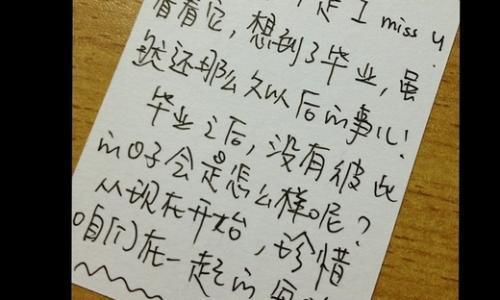 是 I miss u
看看它，想到了毕业，虽
然还那么久以后的事儿！
毕业之后，没有彼此
的日子会是怎么样呢？
从现在开始，珍惜
咱们在一起的